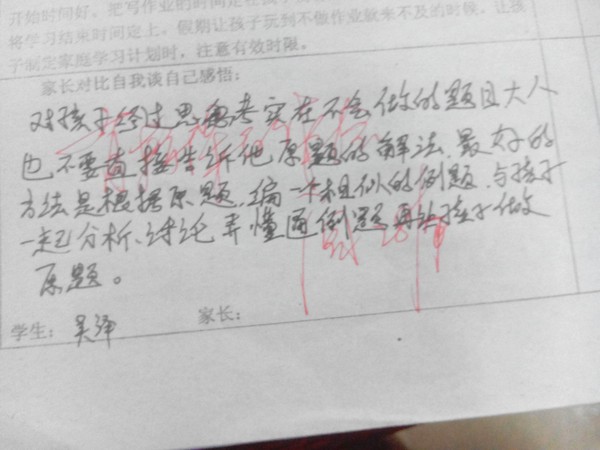 开始时间好。把写作业的时间定在孩子
将学习结束时间定上。假期让孩子玩到不做作业就来不及的时候，让孩
子制定家庭学习计划时，注意有效时限。
家长对比自我谈自己感悟：
对孩子经过思考实在不会做的题目大人
也不要直接告诉他原题的解法，最好的
方法是根据原题，编一个相似的例题，与孩子
一起分析、讨论弄懂通例题再让孩子做
原题。
学生： 吴泽 家长：